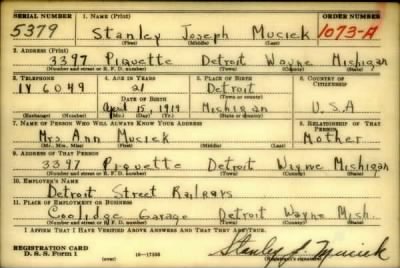 SERIAL NUMBER 1. NAME (Print) ORDER NUMBER
5379 Stanley Joseph Muciek 1073-A
(First) (Middle) (Last)
2. ADDRESS (Print)
3397 Piquette Detroit Wayne Michigan
(Number and street or R. F. D. number) (Town) (County) (State)
3. TELEPHONE 4. AGE IN YEARS 5. PLACE OF BIRTH 6. COUNTRY OF CITIZENSHIP
21 Detroit
DATE OF BIRTH (Town or county)
TY 6049 April 15, 1919 Michigan U.S.A
(Exchange) (Number) (Mo.) (Day) (Yr.) (State or country)
7. NAME OF PERSON WHO WILL ALWAYS KNOW YOUR ADDRESS 8. RELATIONSHIP OF THAT PERSON
Mrs. Ann Muciek Mother
(Mr., Mrs., Miss) (First) (Middle) (Last)
9. ADDRESS OF THAT PERSON
3397 Piquette Detroit Wayne Michigan
(Number and street or R. F. D. number) (Town) (County) (State)
10. EMPLOYER'S NAME
Detroit Street Railways
11. PLACE OF EMPLOYMENT OR BUSINESS
Coolidge Garage Detroit Wayne Mich.
(Number and street or R. F. D. number) (Town) (County) (State)
I AFFIRM THAT I HAVE VERIFIED ABOVE ANSWERS AND THAT THEY ARE TRUE.
REGISTRATION CARD
D. S. S. Form 1 16—17105 Stanley J. Muciek
(Registrant's signature)